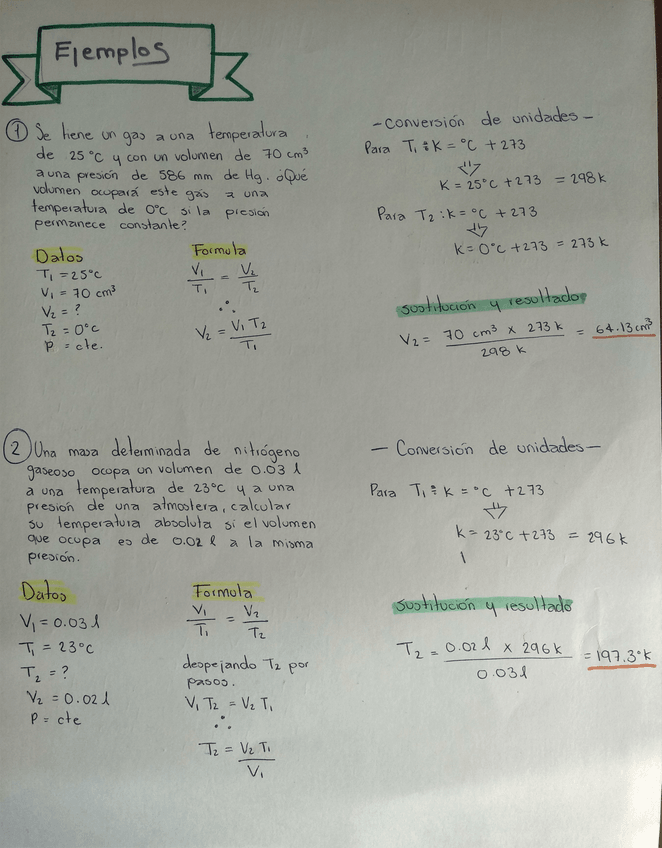 Ejemplos
1 Se tiene un gas a una temperatura
de 25°C y con un volumen de 70 cm³
a una presión de 586 mm de Hg. ¿Qué
volumen ocupará este gas a una
temperatura de 0°C si la presión
permanece constante?
Datos
T₁ = 25°C
V₁ = 70 cm³
V₂ = ?
T₂ = 0°C
P = cte.
Formula
V₁/T₁ = V₂/T₂
∴
V₂ = V₁ T₂/T₁
- Conversión de unidades -
Para T₁ : K = °C + 273
K = 25°C + 273 = 298 k
Para T₂ : k = °C + 273
K = 0°C + 273 = 273 k
sustitución y resultado
V₂ = 70 cm³ x 273 k / 298 k = 64.13 cm³
2 Una masa determinada de nitrógeno
gaseoso ocupa un volumen de 0.03 l
a una temperatura de 23°C y a una
presión de una atmosfera, calcular
su temperatura absoluta si el volumen
que ocupa es de 0.02 l a la misma
presión.
Datos
V₁ = 0.03 l
T₁ = 23°C
T₂ = ?
V₂ = 0.02 l
P = cte
Formula
V₁/T₁ = V₂/T₂
despejando T₂ por
pasos.
V₁ T₂ = V₂ T₁
∴
T₂ = V₂ T₁/V₁
- Conversión de unidades -
Para T₁ : K = °C + 273
k = 23°C + 273 = 296 k
sustitución y resultado
T₂ = 0.02 l x 296 k / 0.03 l = 197.3°K